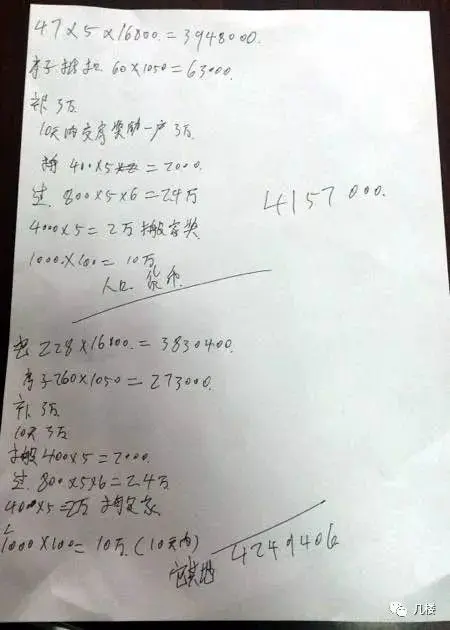 47×5×16800.=3948000.
房子 60×1050=63000.
补 3万
10天内交房奖励一户3万.
400×5=2000.
过. 800×5×6=2.4万
4157000.
4000×5=2万 搬家奖.
1000×100=10万.
人口 货币.
228×16800.=3830400.
房子260×1050=273000.
补 3万
10天 3万
搬 400×5=2000.
过. 800×5×6=2.4万
4000×5=2万 搬家
1000×100=10万.(10天内)
4249406
几楼